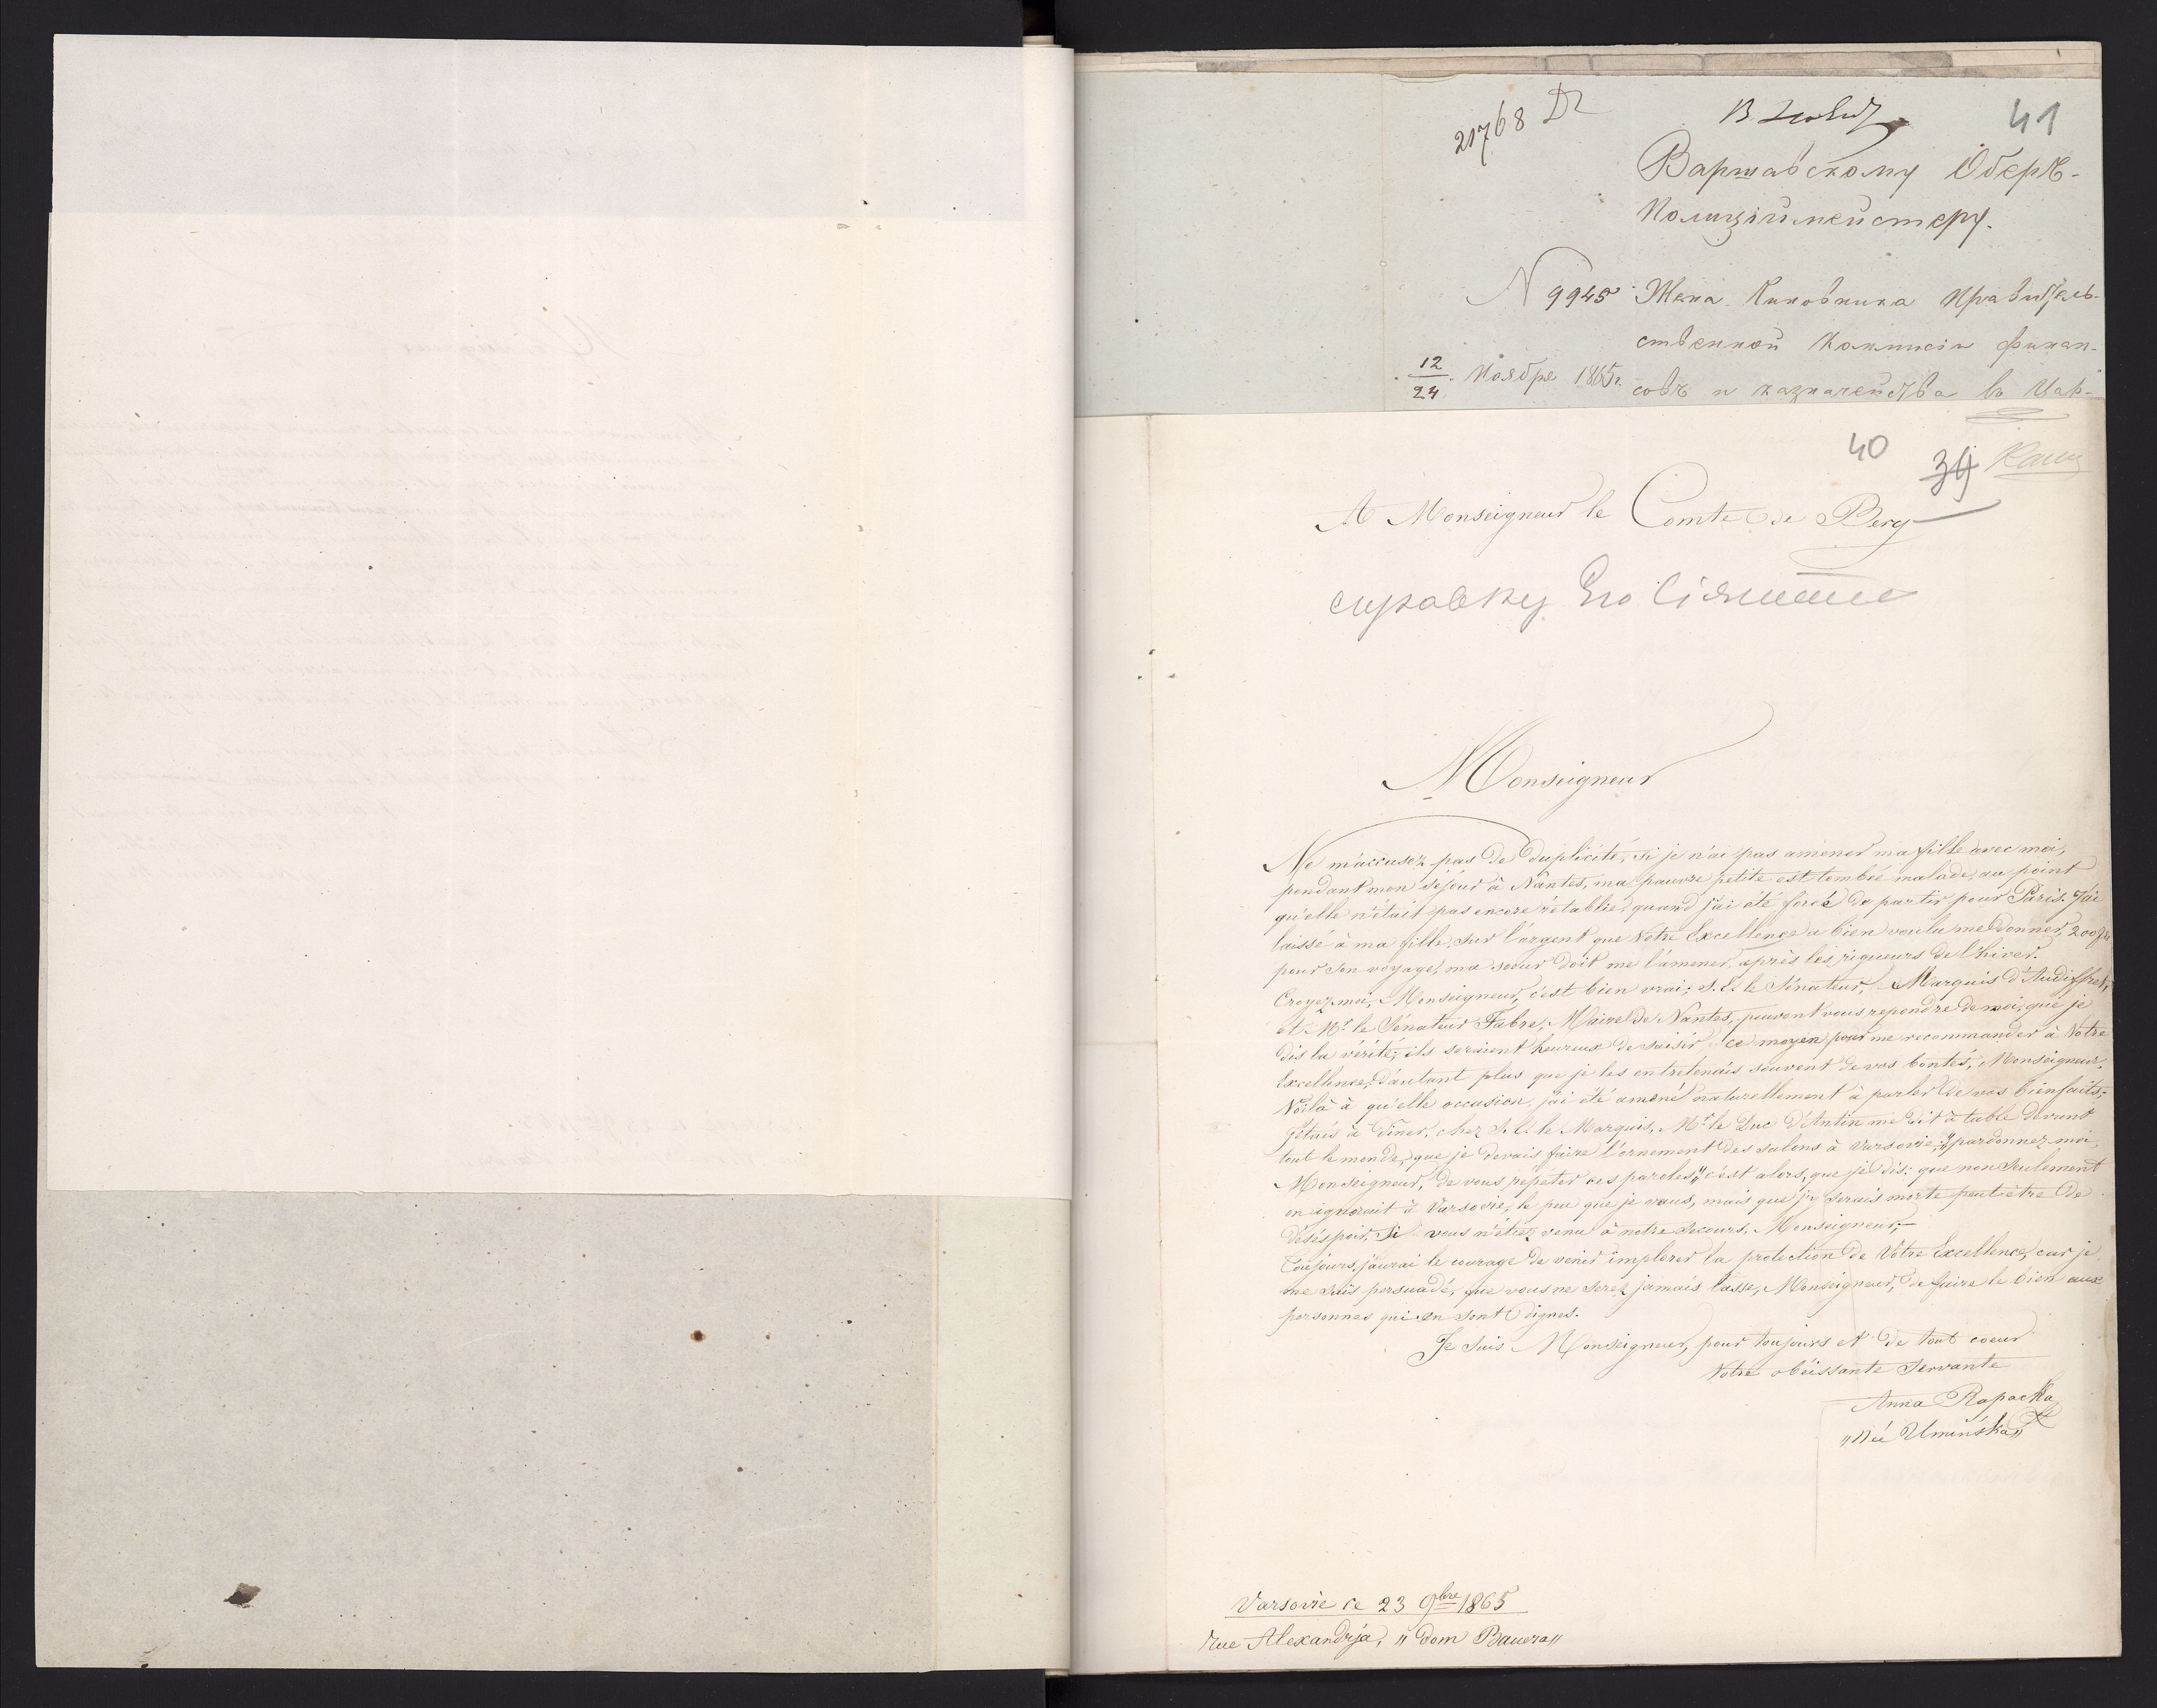 21768
41
Варшавскому Оберъ-
Полиціймейстеру.
N 9945
Жена Чиновника Правитель-
ственной Коммисіи финан-
12/24 Ноября 1865г.
совъ и казначейства въ Цар-
40
39
A Monseigneur le Comte de Berg
справку Его Сіятельство
Monseigneur
Ne m'accusez pas de duplicité, si je n'ai pas amener ma fille avec moi,
pendant mon séjour à Nantes, ma pauvre petite est tombée malade, au point
qu'elle n'était pas encore rétablie, quand j'ai été forcé de partir pour Paris. J'ai
laissé à ma fille, sur l'argent que Votre Excellence a bien voulu me donner, 200
pour son voyage, ma soeur doit me l'amener, après les rigueurs de l'hiver.
Croyez-moi, Monseigneur, c'est bien vrai; S. E. le Sénateur, Marquis d'Audiffret,
et Mr. le Sénateur Fabre, Maire de Nantes, peuvent vous repondre de moi, que je
dis la vérité; ils seraient heureux de saisir ce moyen pour me recommander à Votre
Excellence, d'autant plus que je les entretenais souvent de vos bontés, Monseigneur.
Voilà à qu'elle occasion, j'ai été amené naturellement à parler de vos bienfaits;
J'étais à diner, chez S. E. le Marquis, Mr. le Duc d'Antin me dit à table devant
tout le monde, que je devais faire l'ornement des salons à Varsovie; "pardonnez-moi,
Monseigneur, de vous répéter ces paroles" c'est alors, que je dis: que non seulement
on ignorait à Varsovie, le peu que je vaus, mais que j'y serais morte peut-être de
déséspoir, Si vous n'étiez venu à notre secours, Monseigneur;—
Toujours, j'aurai le courage de venir implorer la protection de Votre Excellence, car je
me suis persuadé, que vous ne serez jamais lasse, Monseigneur, de faire le bien aux
personnes qui en sont dignes.
Je suis Monseigneur, pour toujours et de tout coeur
Votre obéissante Servante
Anna Rapacka
"Née Umińska"
Varsovie ce 23 9bre 1865
rue Alexandrja, "dom Bauera"